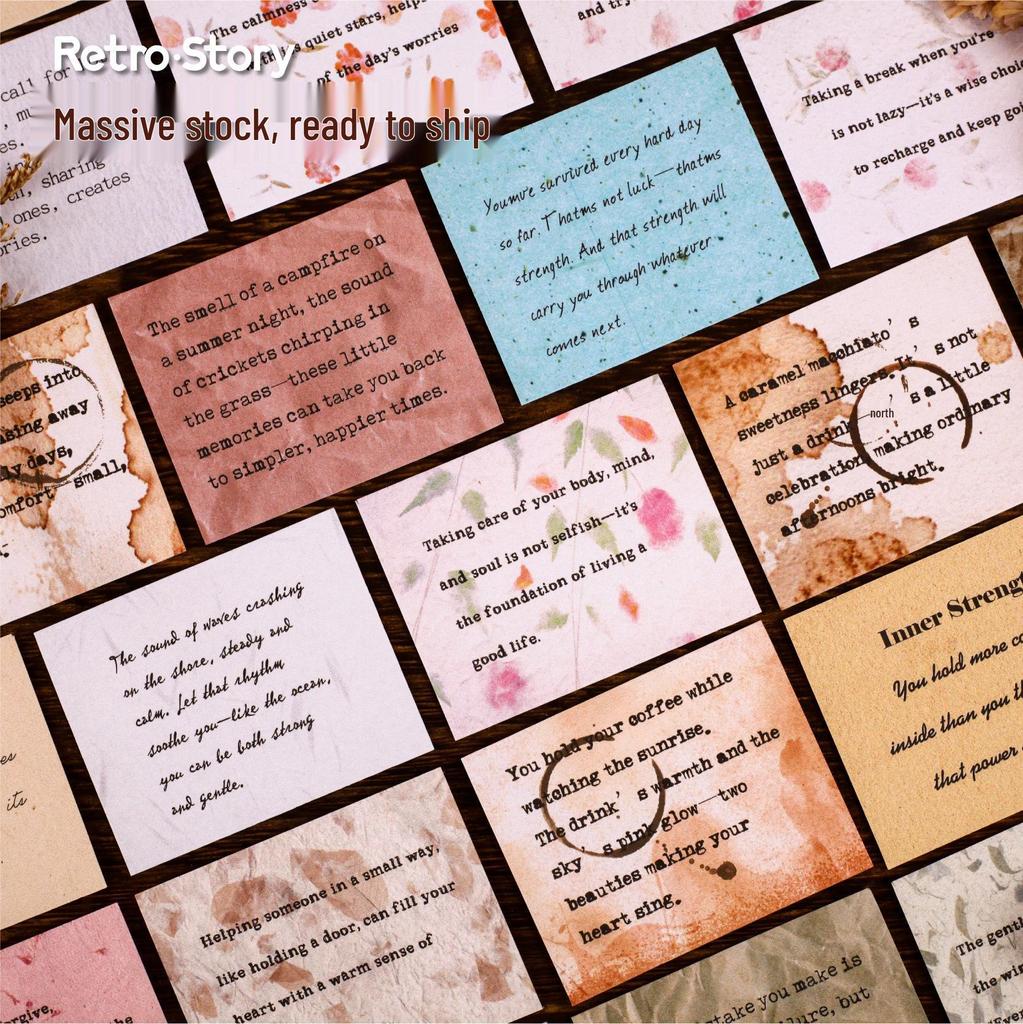 Retro·Story
Massive stock, ready to ship
call for
sharing
ones, creates
The calmness
quiet stars,
of the day's worries
and
Taking a break when you're
is not lazy—it's a wise
to recharge and keep
Youmve survived every hard day
so far. Thatms not luck—thatms
strength. And that strength will
carry you through whatever
comes next.
The smell of a campfire on
a summer night, the sound
of crickets chirping in
the grass—these little
memories can take you back
to simpler, happier times.
into
away
days,
small,
A caramel macchiato' s
sweetness lingers. It' s not
just a drink—
north
' s a little
celebration making ordinary
afternoons bright.
Taking care of your body, mind,
and soul is not selfish—it's
the foundation of living a
good life.
The sound of waves crashing
on the shore, steady and
calm. Let that rhythm
soothe you—like the ocean,
you can be both strong
and gentle.
Inner
You hold more
inside than you
that power
its
You hold your coffee while
watching the sunrise.
The drink' s warmth and the
sky' s pink glow—two
beauties making your
heart sing.
Helping someone in a small way,
like holding a door, can fill your
heart with a warm sense of
the
you make is
but
The
the